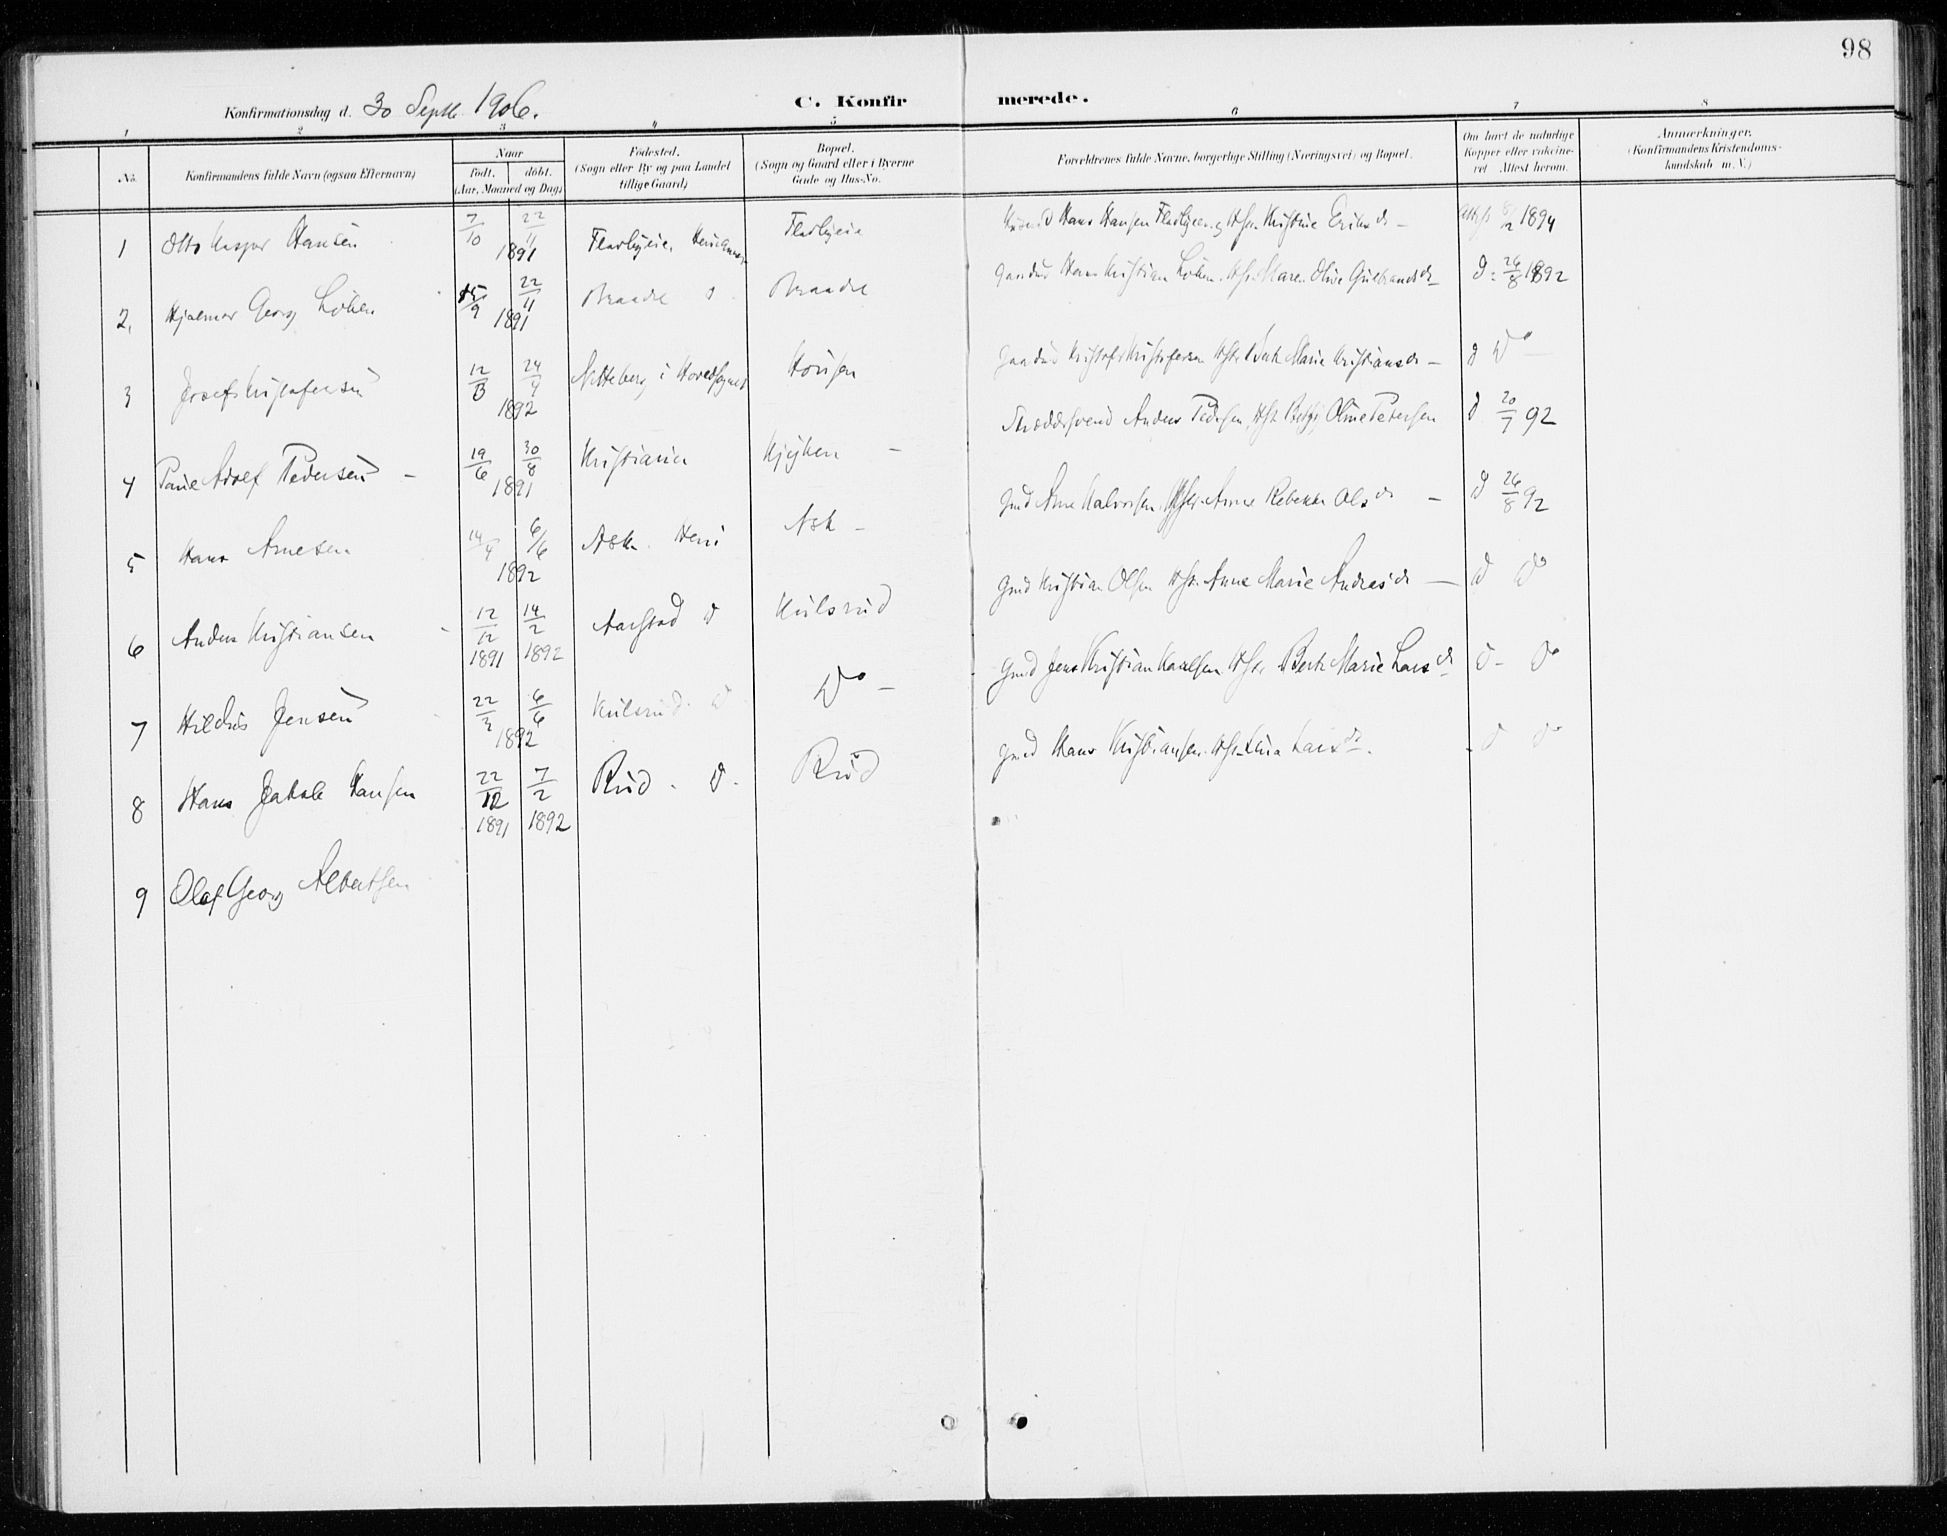 98
Konfirmationsdag d. 30 Septb. 1906.
C. Konfirmerede.
1 2 3 4 5 6 7 8
No.
Konfirmandens fulde Navn (ogsaa Efternavn)
Naar
født. døbt.
(Aar, Maaned og Dag)
Fødested.
(Sogn eller By og paa Landet
tillige Gaard)
Bopæl.
(Sogn og Gaard eller i Byerne
Gade og Hus-No.
Forældrenes fulde Navne, borgerlige Stilling (Næringsvei) og Bopæl.
Om havt de naturlige
Kopper eller vaccine-
ret Attest herom.
Anmærkninger.
(Konfirmandens Kristendoms-
kundskab m. V.)
1 Otto Kaspar Hansen 7/10 22/11 1891 Fladbyeie Fladbyeie Hans Hansen Fladbyeie og Hstr Kristine Eriksdr — 1894
2. Hjalmar Georg Løken 15/9 22/11 1891 Braade d Braade Gaardbr Hans Kristian Løken Hstr Maren Olive Gulbrandsdr d: 26/8 1892
3 Josef Kristofersen 12/3 24/4 1892 Nitteberg i Hovedsognet Gaardbr Kristofer Kristofersen Hstr Marie Kristiansdr — d Do
4 Paul Adolf Pedersen — 19/6 30/8 1891 Kristiania Kjøken — Skræddersvend Anders Pedersen Hstr Oline Petersen d 20/7 92
5 Hans Arnesen 14/4 6/6 1892 Ask Ask — Gmd Arne Halvorsen Hstr Anne Rebekka Olsdr — d 26/8 92
6 Anders Kristiansen 12/12 1891 14/2 1892 Aarstad d Kulsrud Gmd Kristian Olsen Hstr Anne Marie Andresdr — d Do
7 Hildris Jensen 22/3 6/6 1892 Kulsrud d Do — Gmd Jens Kristian Karlsen Hstr Berte Marie Larsdr d - Do
8 Hans Jakob Hansen 22/12 1891 7/2 1892 Rud. d. Rud Gmd Hans Kristiansen Hstr Lina Larsdr. d Do
9 Olaf Georg Albertsen